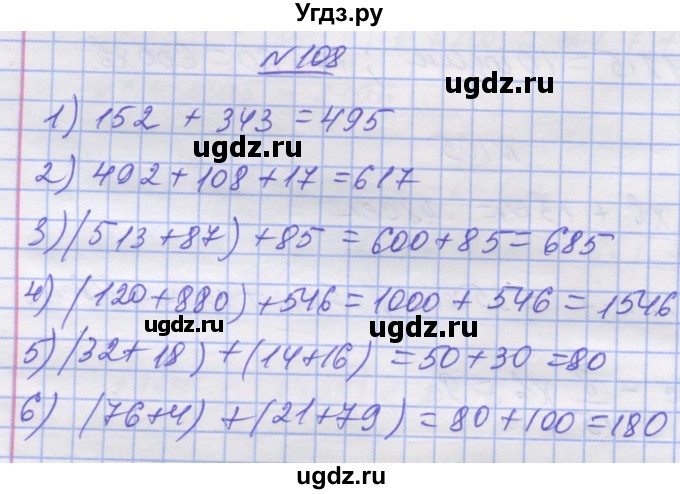 Угдз.ру
№108
1) 152 + 343 = 495
ugdz.ru
ugdz.ru
2) 492 + 108 + 17 = 617
3) (513 + 87) + 85 = 600 + 85 = 685
4) (120 + 880) + 546 = 1000 + 546 = 1546
ugdz.ru
ugdz.ru
5) (32 + 18) + (14 + 16) = 50 + 30 = 80
6) (76 + 4) + (21 + 79) = 80 + 100 = 180
ugdz.ru